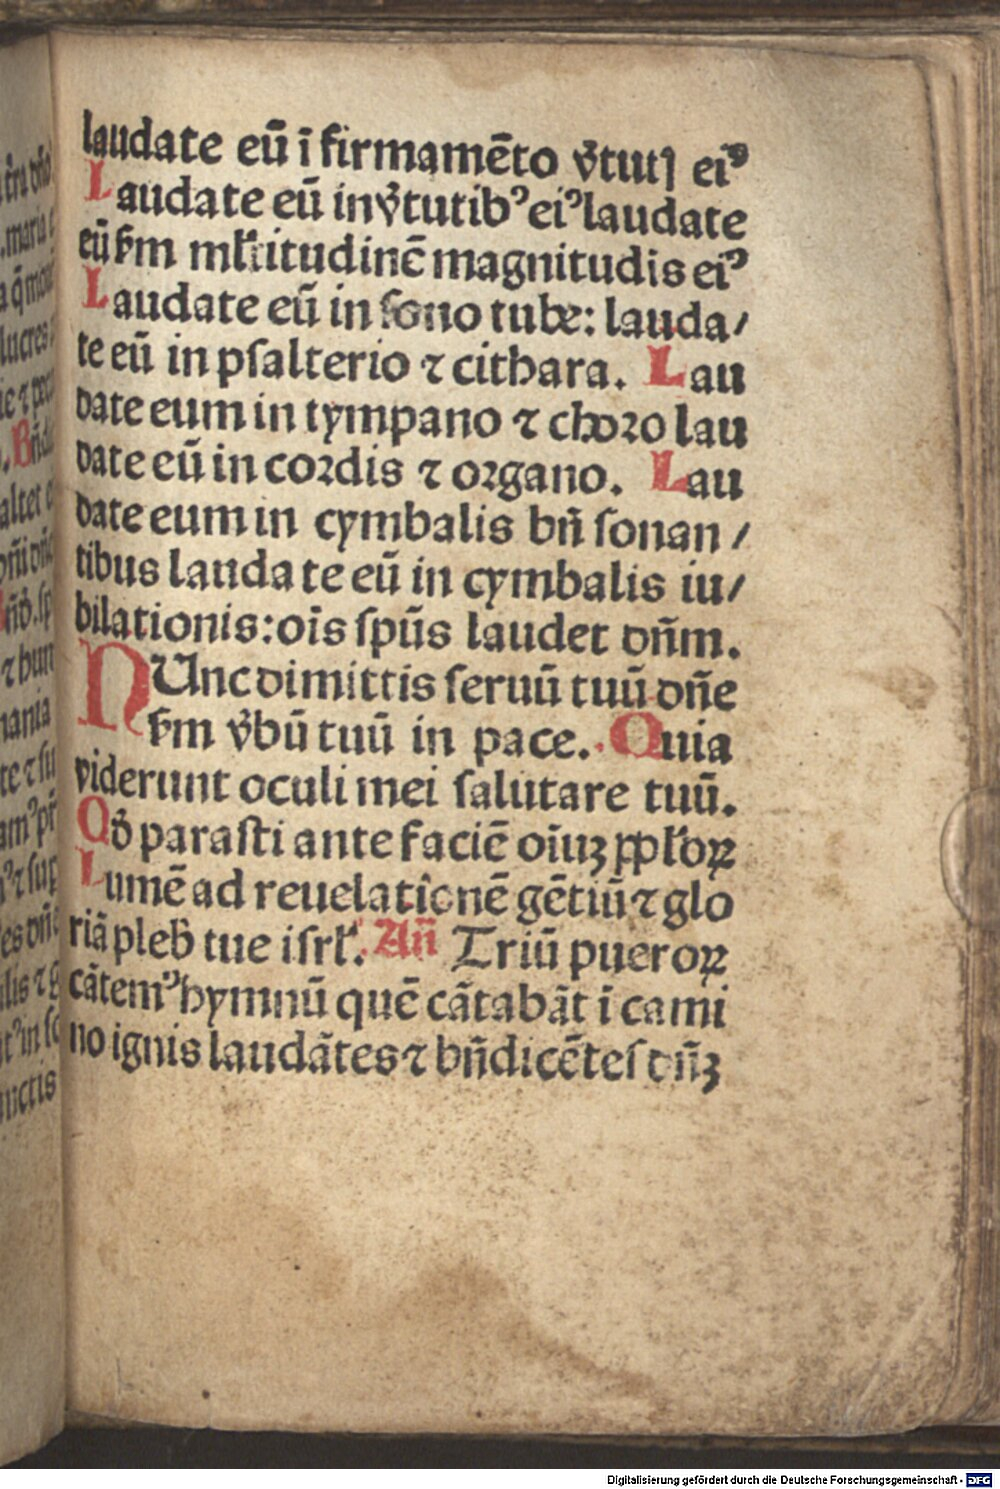 laudate eū ī firmamēto v̄tutꝭ eiꝰ
Laudate eū in v̄tutibꝰ eiꝰ laudate
eū ẜm ml̄titudinē magnitudis eiꝰ
Laudate eū in ſono tube: lauda/
te eū in pſalterio ⁊ cithara. Lau
date eum in tympano ⁊ choꝛo lau
date eū in coꝛdis ⁊ oꝛgano. Lau
date eum in cymbalis bn̄ ſonan/
tibus laudate eū in cymbalis iu/
bilationis: oīs ſpūs laudet dn̄m.
NUnc dimittis ſeruū tuū dn̄e
ẜm v̄bū tuū in pace. Quia
viderunt oculi mei ſalutare tuū.
Qd̄ paraſti ante faciē oīuꝫ ppl̄oꝝ
Lumē ad reuelationē gētiū ⁊ glo
riā pleb̄ tue iſrl̄. An̄ Triū pueroꝝ
cātemꝰ hymnū quē cātabāt ī cami
no ignis laudātes ⁊ bn̄dicētes dn̄ꝫ
Digitalisierung gefördert durch die Deutsche Forschungsgemeinschaft - DFG